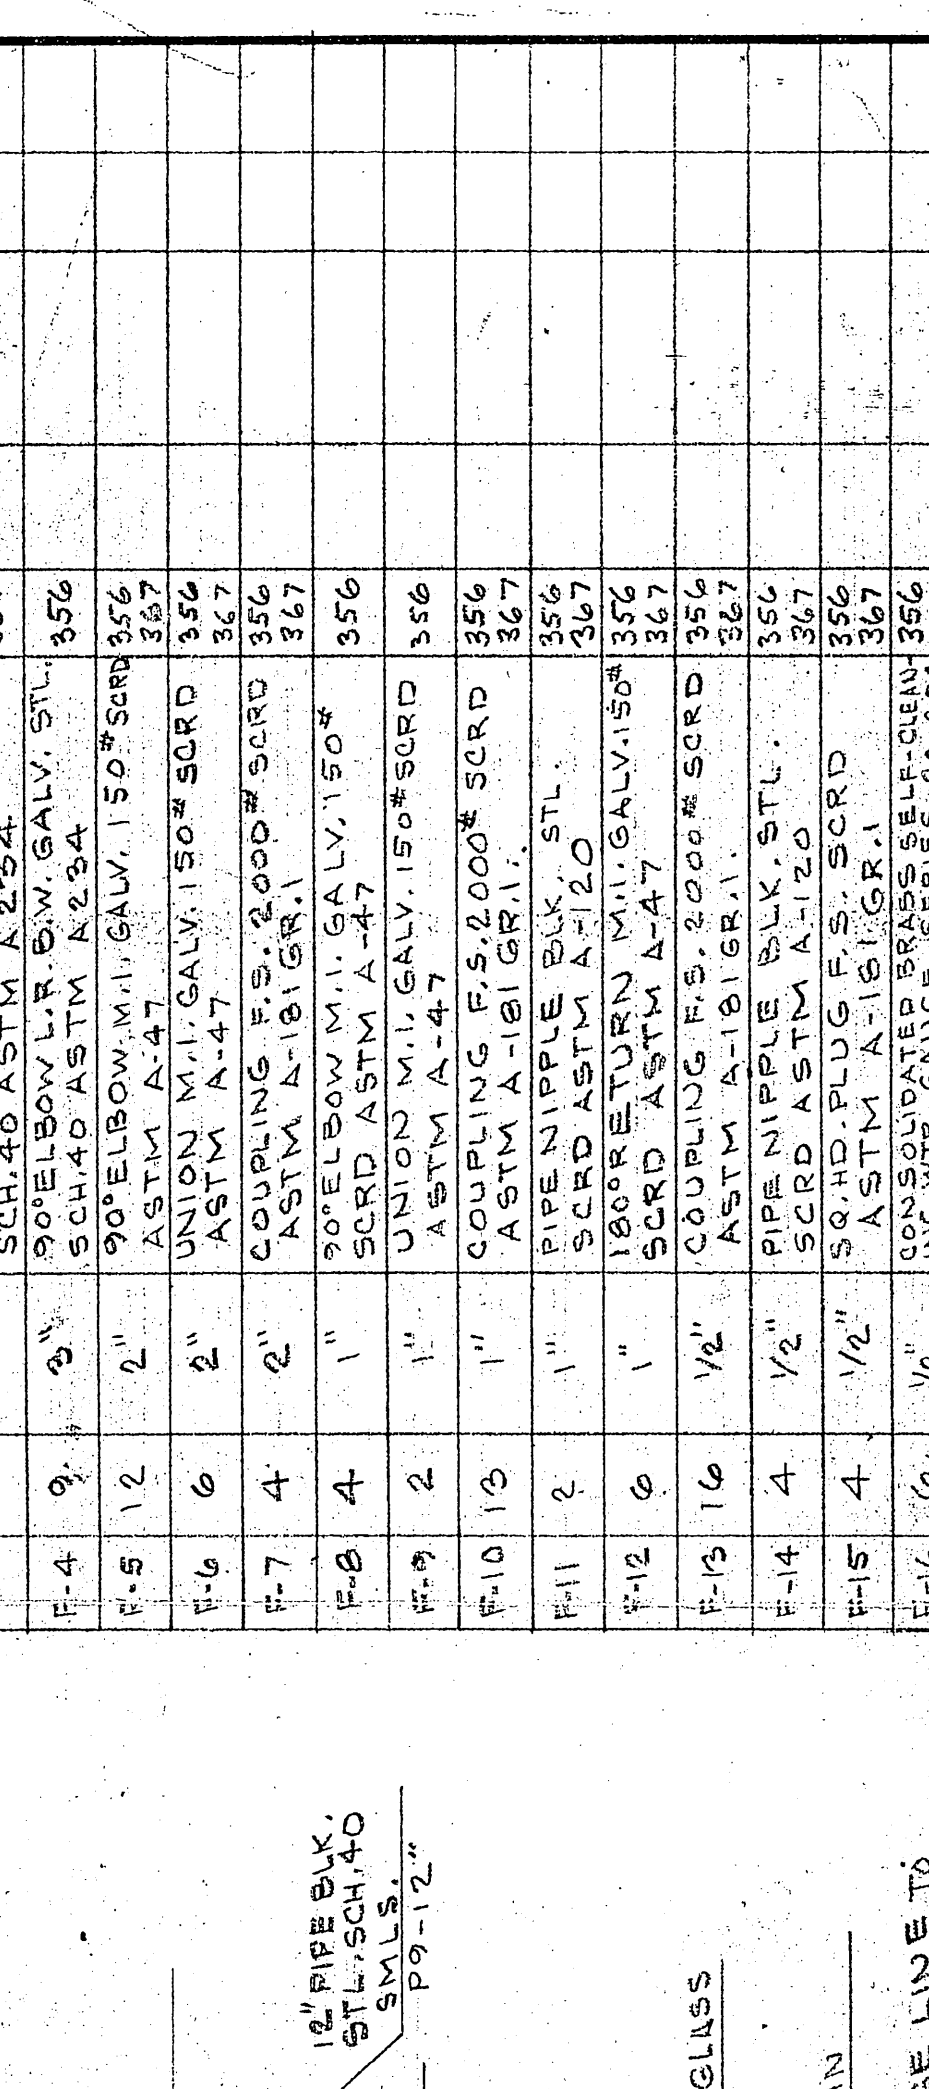 SCH.40 ASTM A234
F-4 9 3" 90° ELBOW L.R. B.W. GALV. STL. 356
SCH.40 ASTM A234
F-5 12 2" 90° ELBOW M.I. GALV. 150# SCRD 356
ASTM A-47 367
F-6 6 2" UNION M.I. GALV. 150# SCRD 356
ASTM A-47 367
F-7 4 2" COUPLING F.S. 2000# SCRD 356
ASTM A-181 GR.1 367
F-8 4 1" 90° ELBOW M.I. GALV. 150# 356
SCRD ASTM A-47
F-9 2 1" UNION M.I. GALV. 150# SCRD 356
ASTM A-47
F-10 13 1" COUPLING F.S. 2000# SCRD 356
ASTM A-181 GR.1. 367
F-11 2 1" PIPE NIPPLE BLK. STL. 356
SCRD ASTM A-120 367
F-12 6 1" 180° RETURN M.I. GALV. 150# 356
SCRD ASTM A-47 367
F-13 16 1/2" COUPLING F.S. 2000# SCRD 356
ASTM A-181 GR.1. 367
F-14 4 1/2" PIPE NIPPLE BLK. STL. 356
SCRD ASTM A-120 367
F-15 4 1/2" SQ. HD. PLUG F.S. SCRD 356
ASTM A-181 GR.1 367
F-16 6 1/2" CONSOLIDATED BRASS SELF-CLEAN- 356
12" PIPE BLK.
STL. SCH.40
SMLS.
P9-12"
GLASS
LINE TO